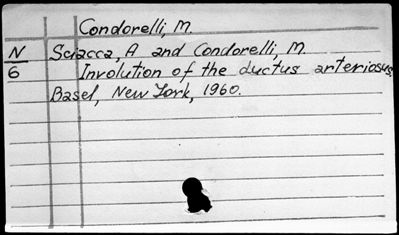 Condorelli, M.
N Sciacca, A and Condorelli, M.
6 Involution of the ductus arteriosus,
Basel, New York, 1960.